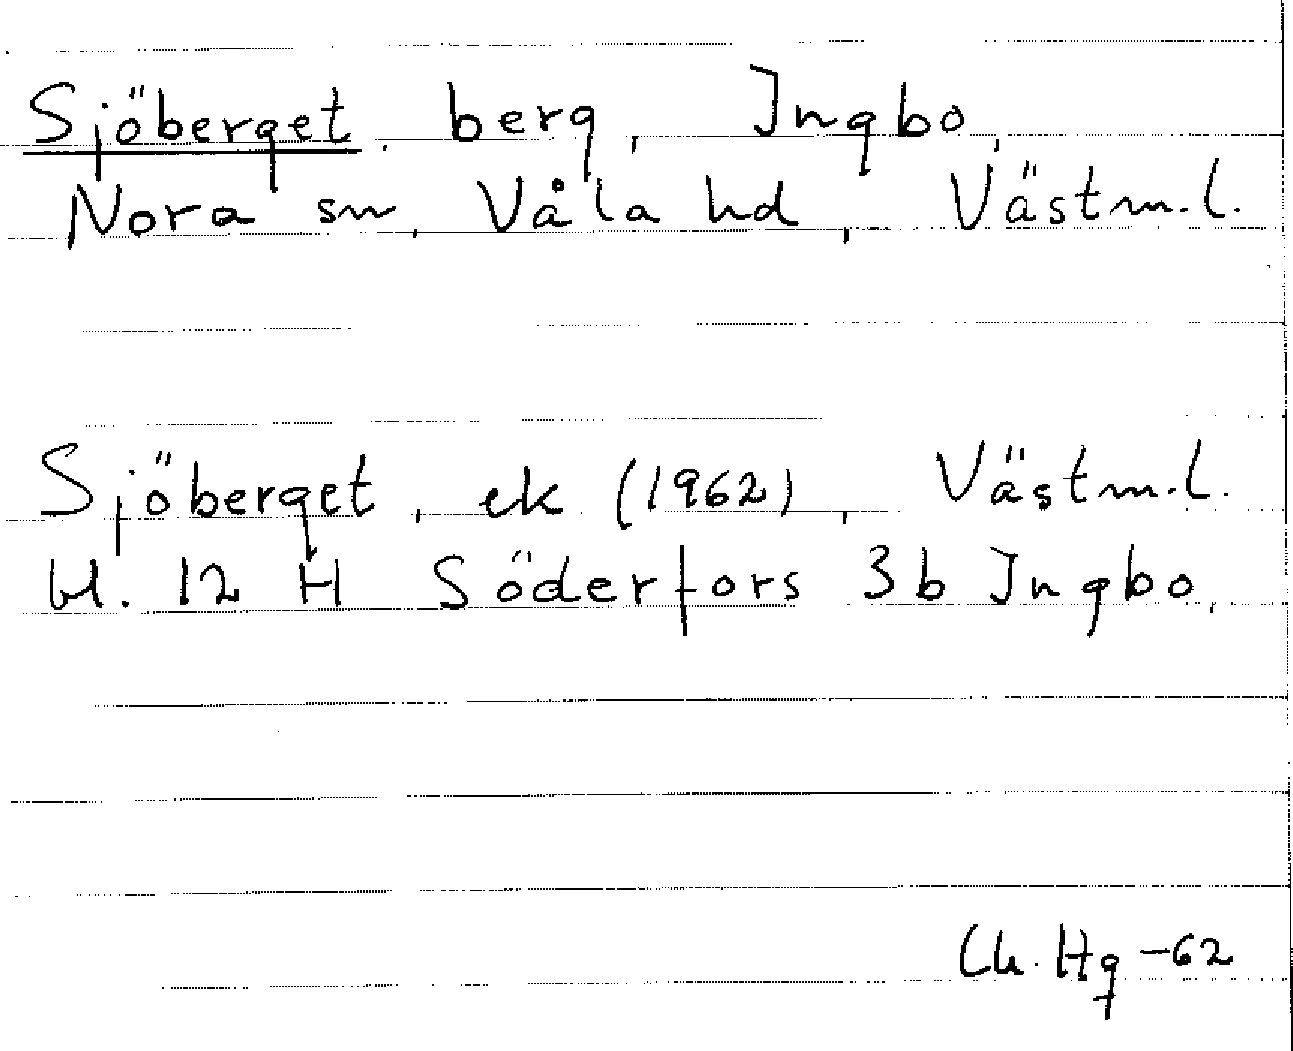 Sjöberget, berg, Ingbo,
Nora sn, Våla hd, Västm.l.
Sjöberget, ek (1962), Västm.l.
bl. 12 H Söderfors 3b Ingbo.
Ch. Hg -62